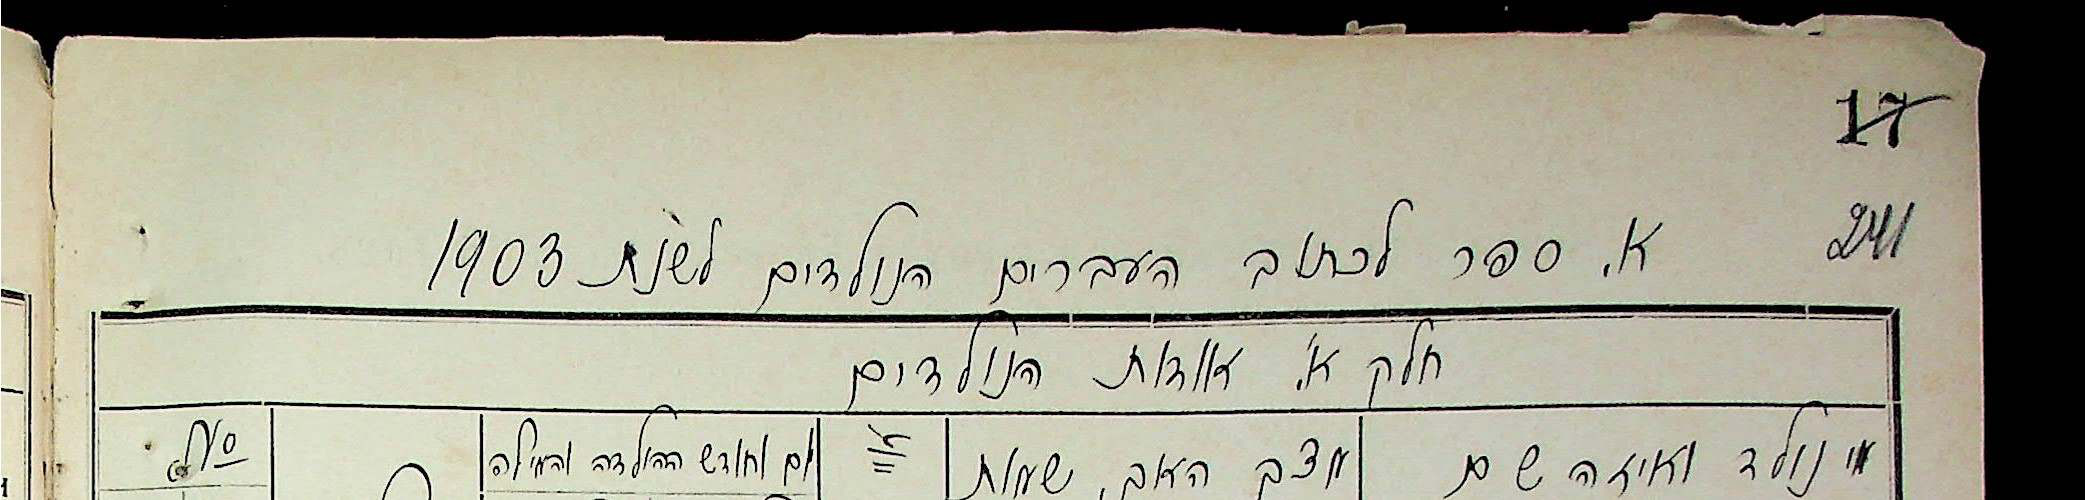 17
241
א. ספר לכתוב העברים הנולדים לשנת 1903
חלק א. אודות הנולדים
מי נולד ואיזה שם
מצב האב, שמות
יום וחודש ההולדה והמילה